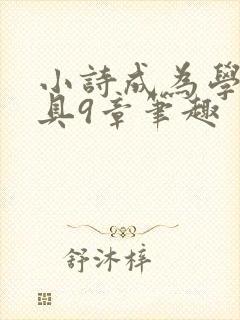 小詩成為學
具9章筆趣
舒沐梓